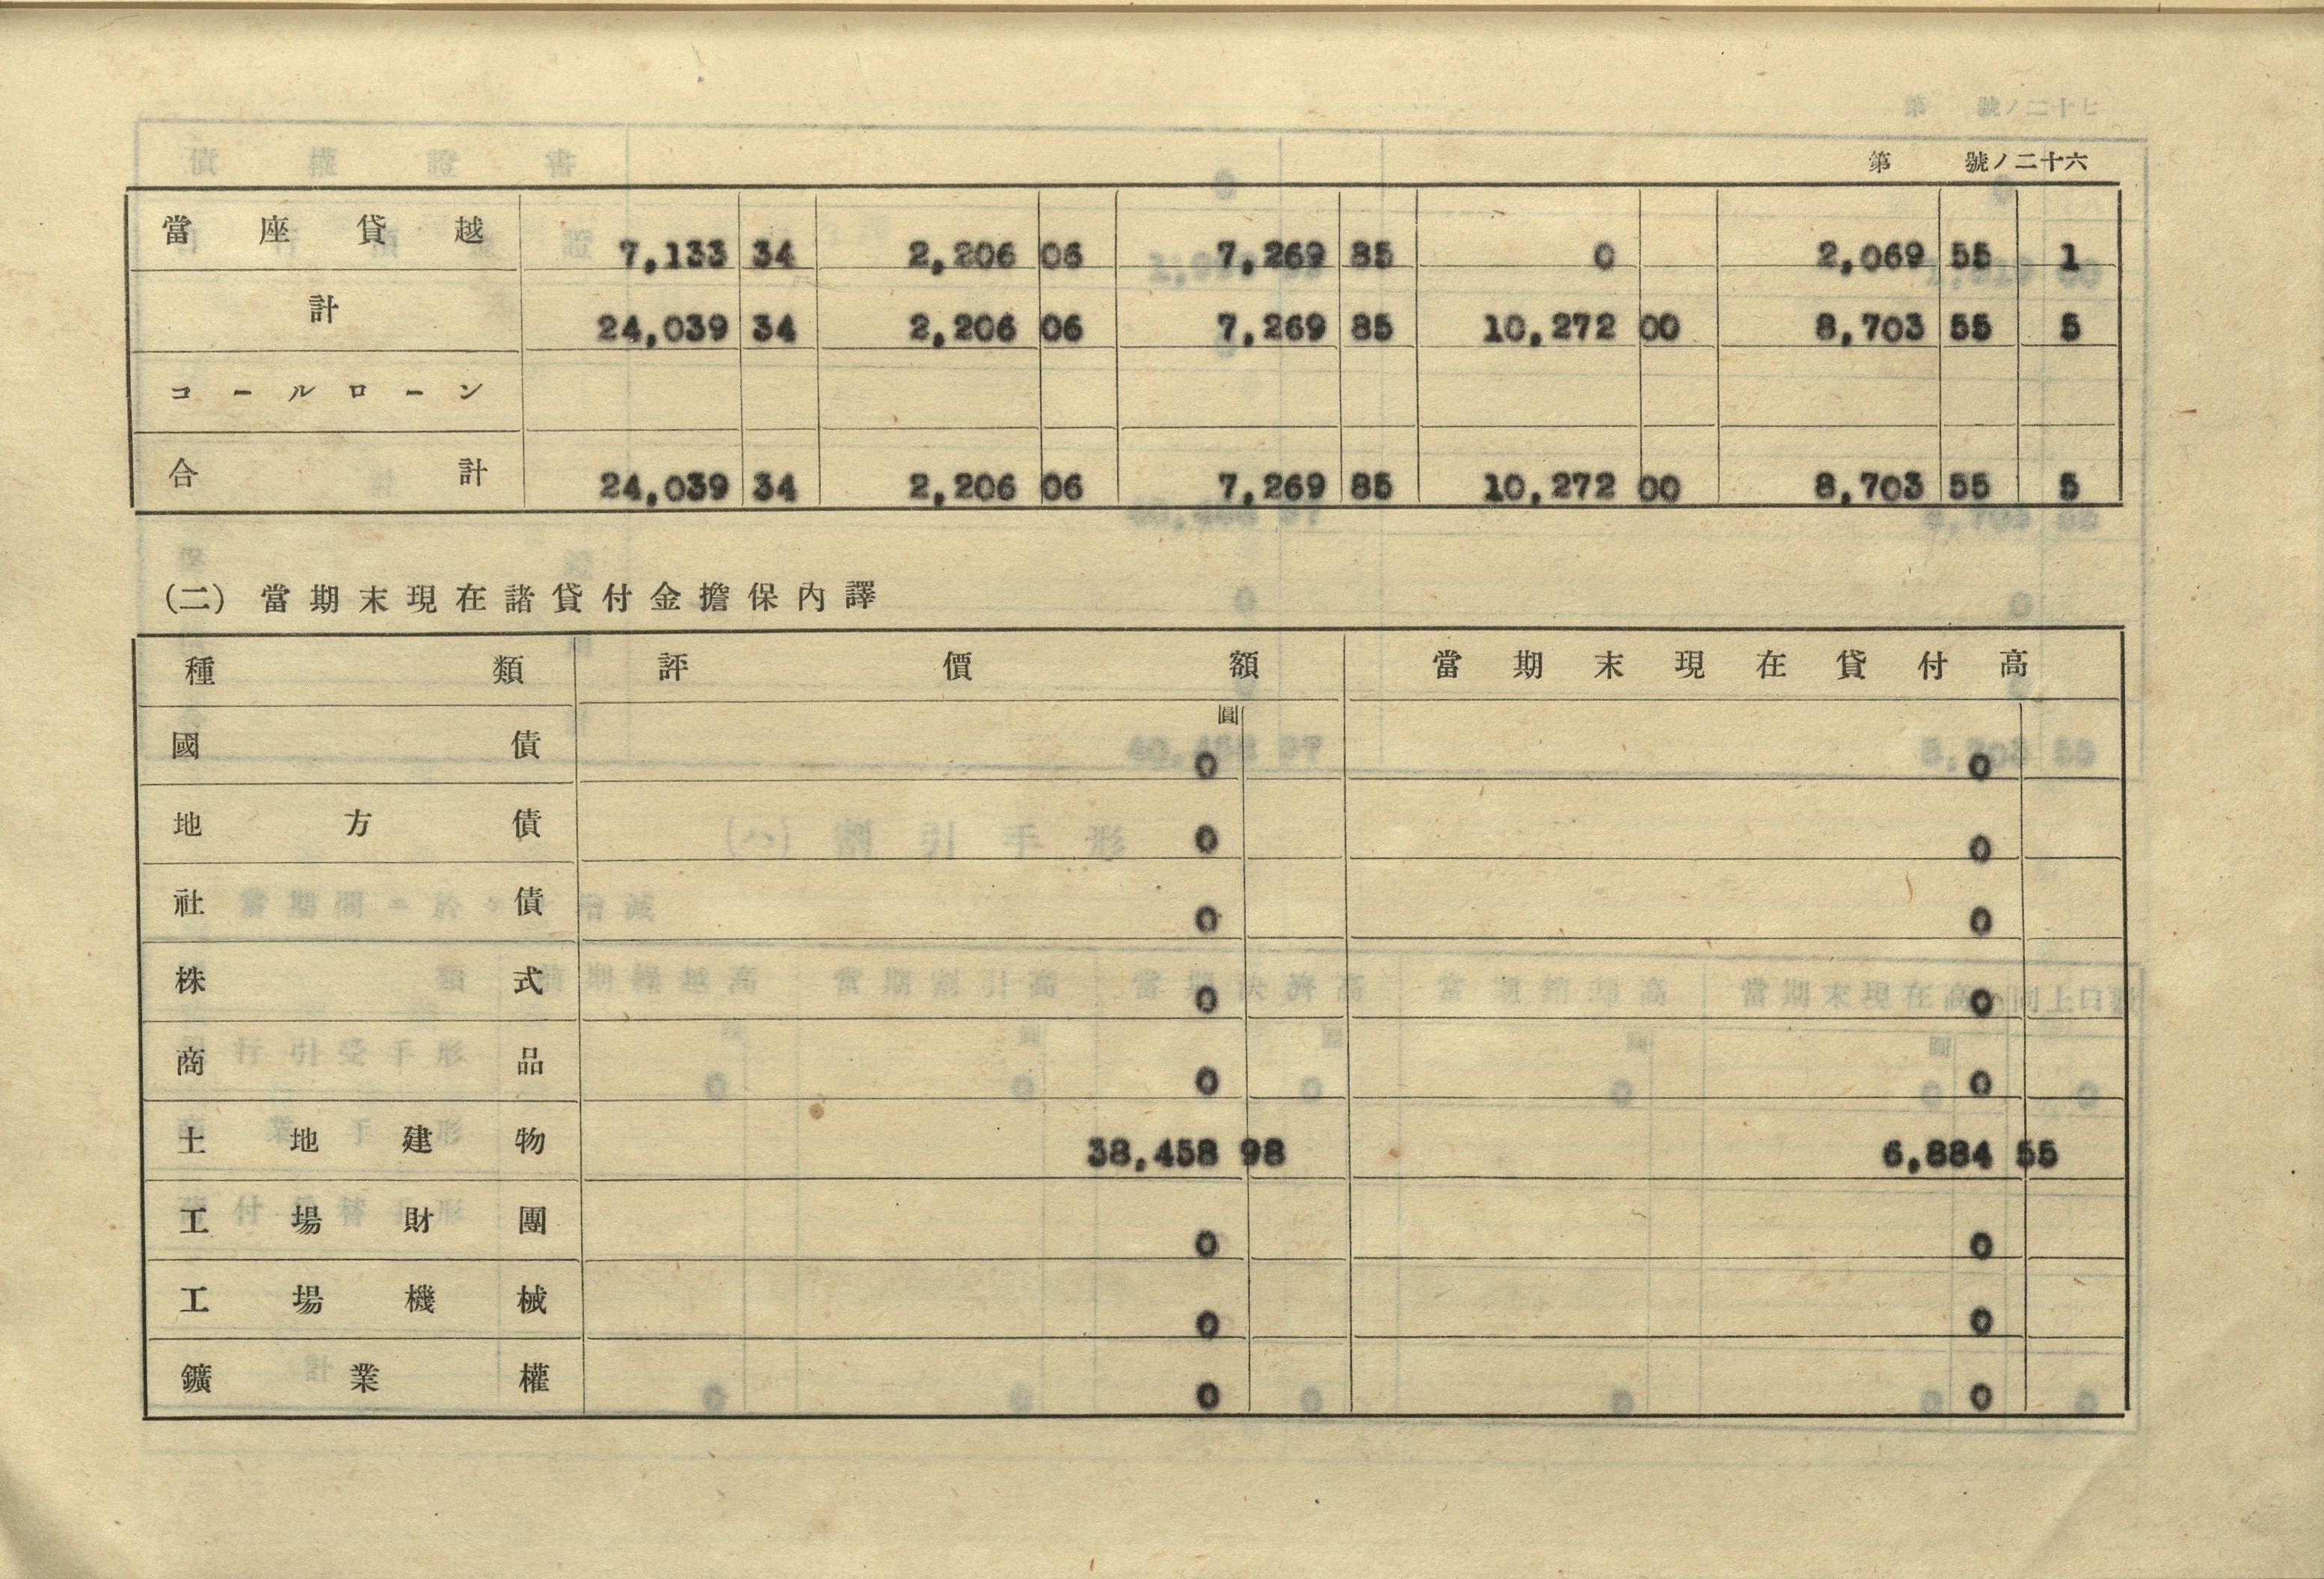 第 號ノ二十六
當座貸越 7,133 34 2,206 06 7,269 85 0 2,069 55 1
計 24,039 34 2,206 06 7,269 85 10,272 00 8,703 55 5
コールローン
合計 24,039 34 2,206 06 7,269 85 10,272 00 8,703 55 5
(二) 當期末現在諸貸付金擔保內譯
種類 評價額 當期末現在貸付高
圓
國債 0 0
地方債 0 0
社債 0 0
株式 0 0
商品 0 0
土地建物 38,458 98 6,884 55
工場財團 0 0
工場機械 0 0
鑛業權 0 0